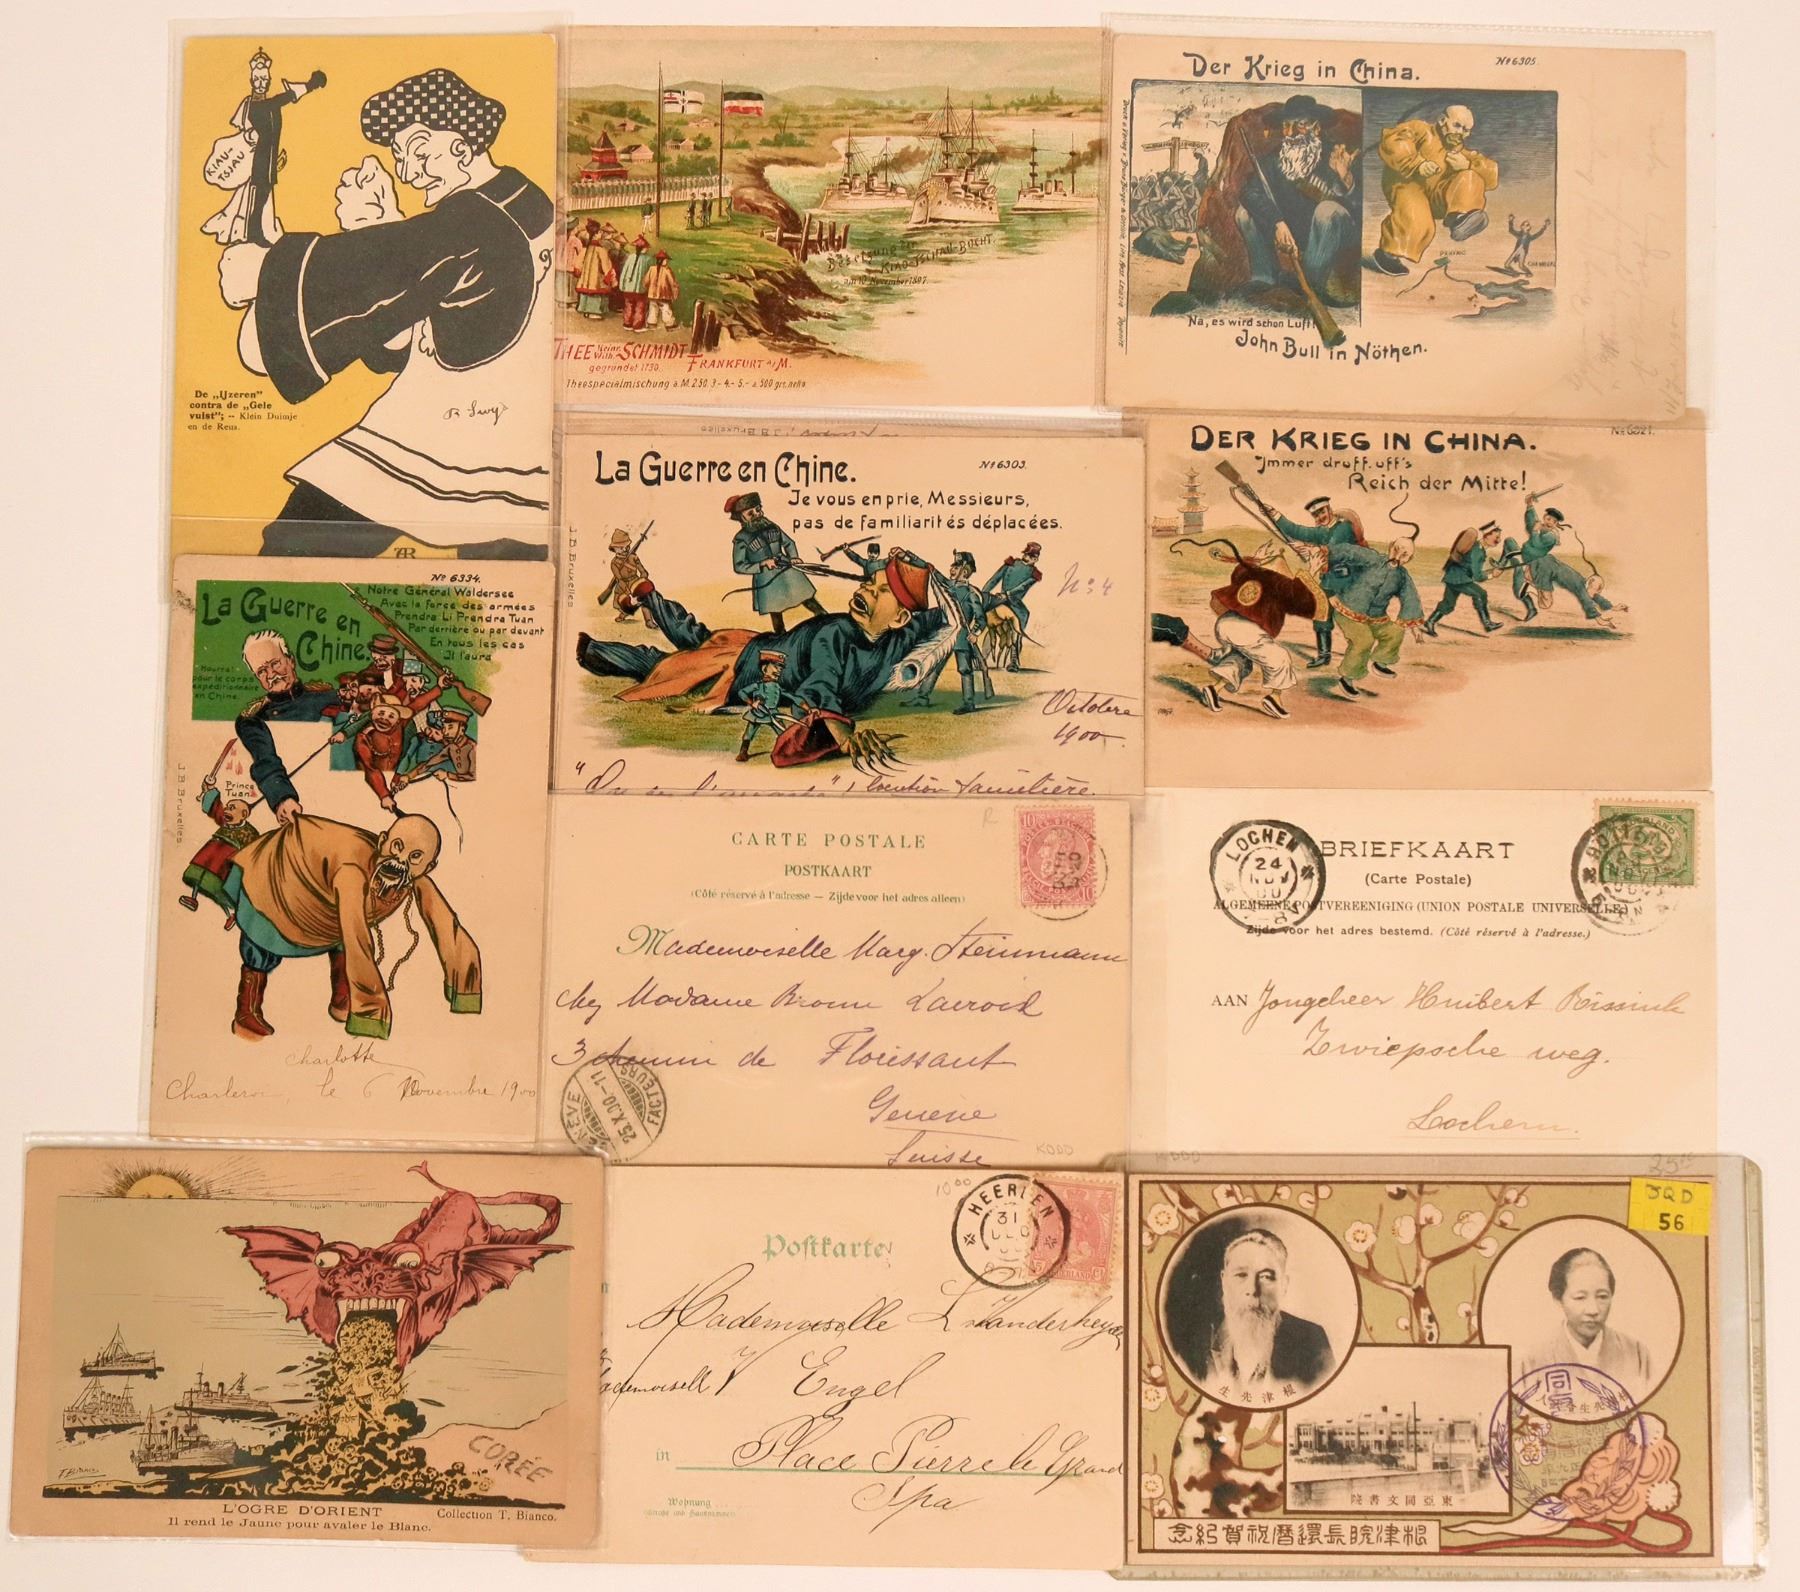 KIAU-
TSJAU
De „IJzeren”
contra de „Gele
vuist”; -- Klein Duimje
en de Reus.
Besetzung der
KIAO-TSCHAU-BUCHT.
am 10 November 1897.
THEE Heinr. Wilh. SCHMIDT FRANKFURT a/M.
gegründet 1730.
Theespecialmischung à M. 2.50 3-4-5- à 500 grs. netto
Der Krieg in China.
No 6305.
PEKING
CHAMBERL
Na, es wird schon Luft!
John Bull in Nöthen.
La Guerre en Chine.
No 6303.
Je vous en prie, Messieurs,
pas de familiarités déplacées.
J.B. Bruxelles
No: 4
Octobre
1900.
DER KRIEG IN CHINA.
No 6321.
Immer druff. uff's
Reich der Mitte!
No 6334.
La Guerre en
Chine.
Notre Général Waldersee
Avec la force des armées
Prendra Li Prendra Tuan
Par derrière ou par devant
En tous les cas
Il l'aura
Hourra!
pour le corps
expéditionnaire
en Chine.
Prince
Tuan
J.B. Bruxelles
Charlotte
Charleroi, le 6 Novembre 1900
CARTE POSTALE
POSTKAART
(Côté réservé à l'adresse — Zijde voor het adres alleen)
Mademoiselle Marg. Steinmann
chez Madame Brown Lacroix
3 chemin de Florissant
Genève
Suisse
GENÈVE
25.X.00.-11
FACTEURS
KDDD
LOCHEM
24
NOV
00
BRIEFKAART
(Carte Postale)
ALGEMEENE POSTVEREENIGING (UNION POSTALE UNIVERSELLE)
Zijde voor het adres bestemd. (Côté réservé à l'adresse.)
AAN Jongeheer Huibert Bissink
Zwiepsche weg.
Lochem.
CORÉE
L'OGRE D'ORIENT
Il rend le Jaune pour avaler le Blanc.
Collection T. Bianco.
T. BIANCO
10 00
Postkarte
HEERLEN
31
DEC
Mademoiselle L. Vanderheyde
Mademoiselle V Engel
in Place Pierre le Grand
Spa
Wohnung
25 00
JQD
56
根津先生
東亞同文書院
根津院長還曆祝賀紀念